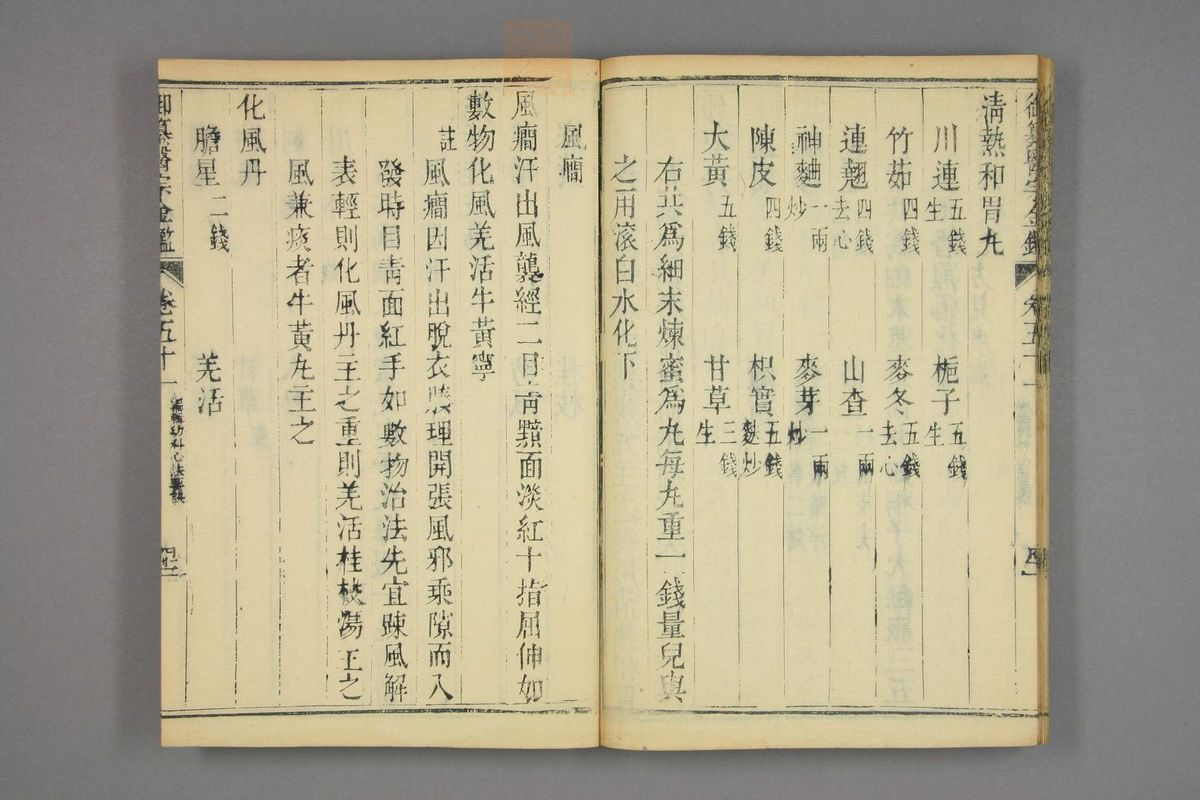 御纂醫宗金鑑 卷五十一
清熱和胃丸
川連五錢生 梔子五錢生
竹茹四錢 麥冬五錢去心
連翹四錢去心 山查一兩
神麯一兩炒 麥芽一兩炒
陳皮四錢 枳實五錢麩炒
大黃五錢 甘草三錢生
右共爲細末煉蜜爲丸每丸重一錢量兒與
之用滾白水化下
風癎
風癎汗出風襲經二目青黯面淡紅十指屈伸如
數物化風羌活牛黃寧
註風癎因汗出脫衣腠理開張風邪乘隙而入
發時目青面紅手如數物治法先宜踈風解
表輕則化風丹主之重則羌活桂枝湯主之
風兼痰者牛黃丸主之
化風丹
膽星二錢 羌活
御纂醫宗金鑑 卷五十一 編輯幼科心法要訣